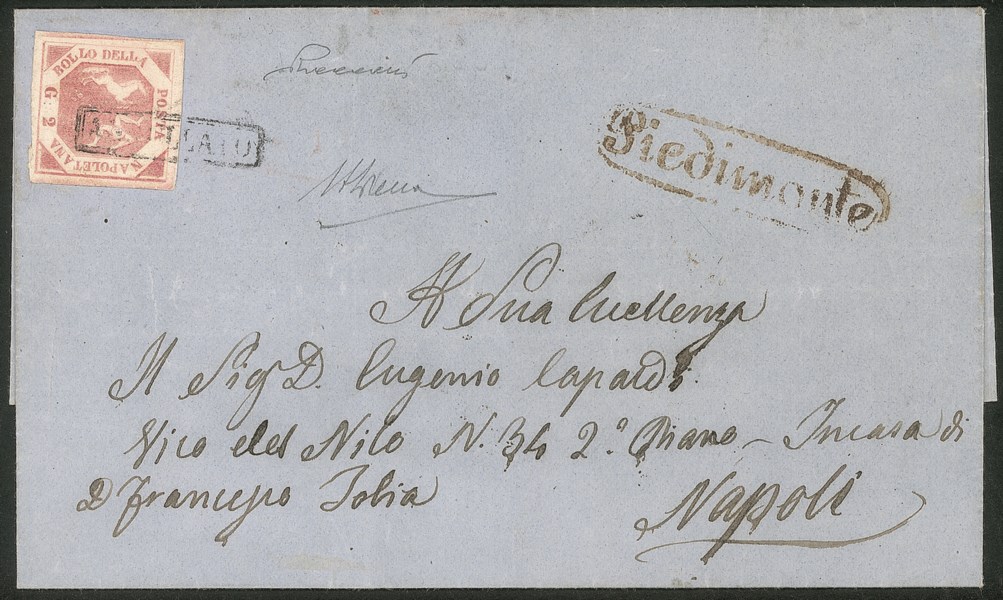 BOLLO DELLA
POSTA
NAPOLETANA
G 2
A LATO
Piedimonte
A Sua Eccellenza
Il Sig D. Eugenio Capardi
Vico del Nilo N. 34 2.º Piano - Incasa di
D Francesco Tobia
Napoli